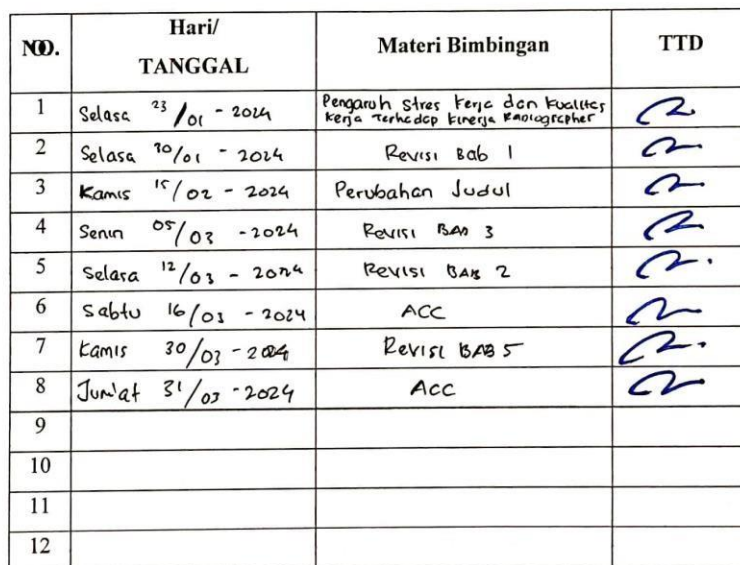 NO. Hari/ TANGGAL Materi Bimbingan TTD
1 Selasa 23/01 - 2024 Pengaruh stres kerja dan kualitas
kerja Terhadap kinerja Radiographer
2 Selasa 30/01 - 2024 Revisi Bab 1
3 Kamis 15/02 - 2024 Perubahan Judul
4 Senin 05/03 - 2024 Revisi BAB 3
5 Selasa 12/03 - 2024 Revisi BAB 2
6 Sabtu 16/03 - 2024 ACC
7 Kamis 30/03 - 2024 Revisi BAB 5
8 Jum'at 31/03 - 2024 ACC
9
10
11
12